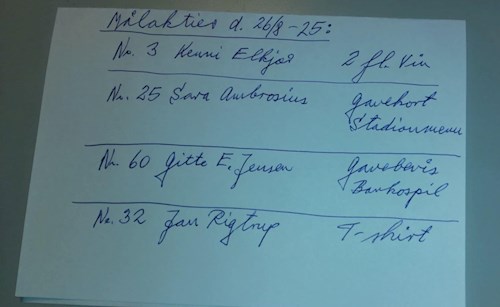 Målaktier d. 26/8-25:
Nr. 3 Kenni Elkjær 2 fl. Vin
Nr. 25 Sara Ambrosius Gavekort
Stadionmenu
Nr. 60 Gitte E. Jensen Gavebevis
Bankospil
Nr. 32 Jars Rigtrup T-shirt